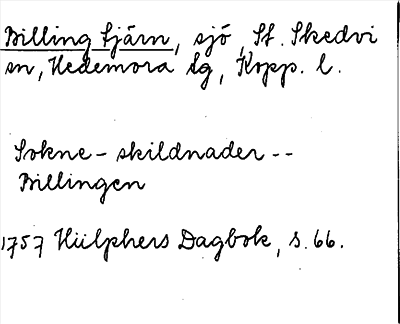 Billing tjärn, sjö, St. Skedvi
sn, Hedemora tg, Kopp. l.
Sokne-skildnader --
Billingen
1757 Hülphers Dagbok, s. 66.